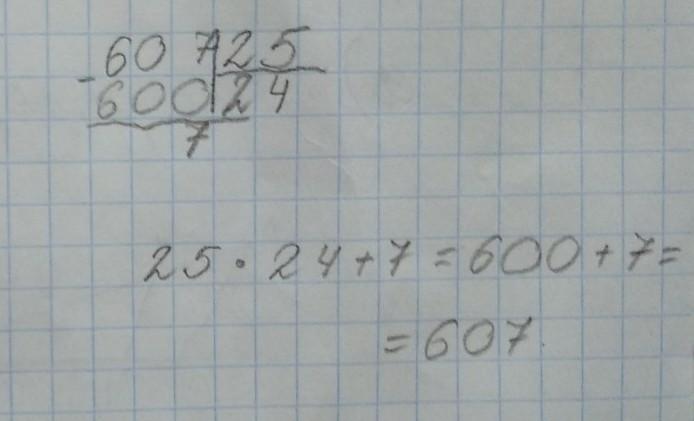 607|25
-600|24
7
25 · 24 + 7 = 600 + 7 =
= 607.